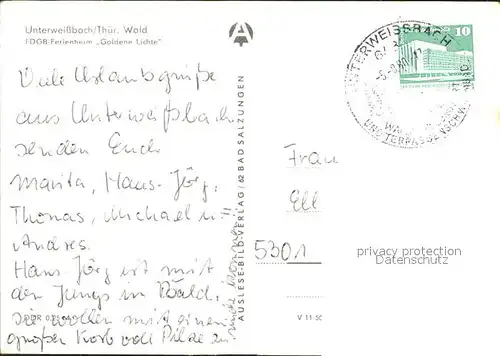 Unterweißbach/Thür. Wald
FDGB-Ferienheim „Goldene Lichte"
Viele Urlaubsgrüße
aus Unterweißbach
senden Euch
Marita, Hans-Jörg,
Thomas, Michael u.
Andres.
Hans-Jörg ist mit
den Jungs in Wald.
sie wollen mit einen
großen Korb voll Pilze zu
AUSLESE-BILD-VERLAG/62 BAD SALZUNGEN
UNTERWEISSBACH
10
Frau
Ell
5301
privacy protection
Datenschutz
V 11 50